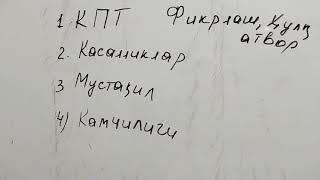 1 КПТ Фикрлаш, Хулқ
атвор
2. Касалликлар
3 Мустақил
4) Камчилиги